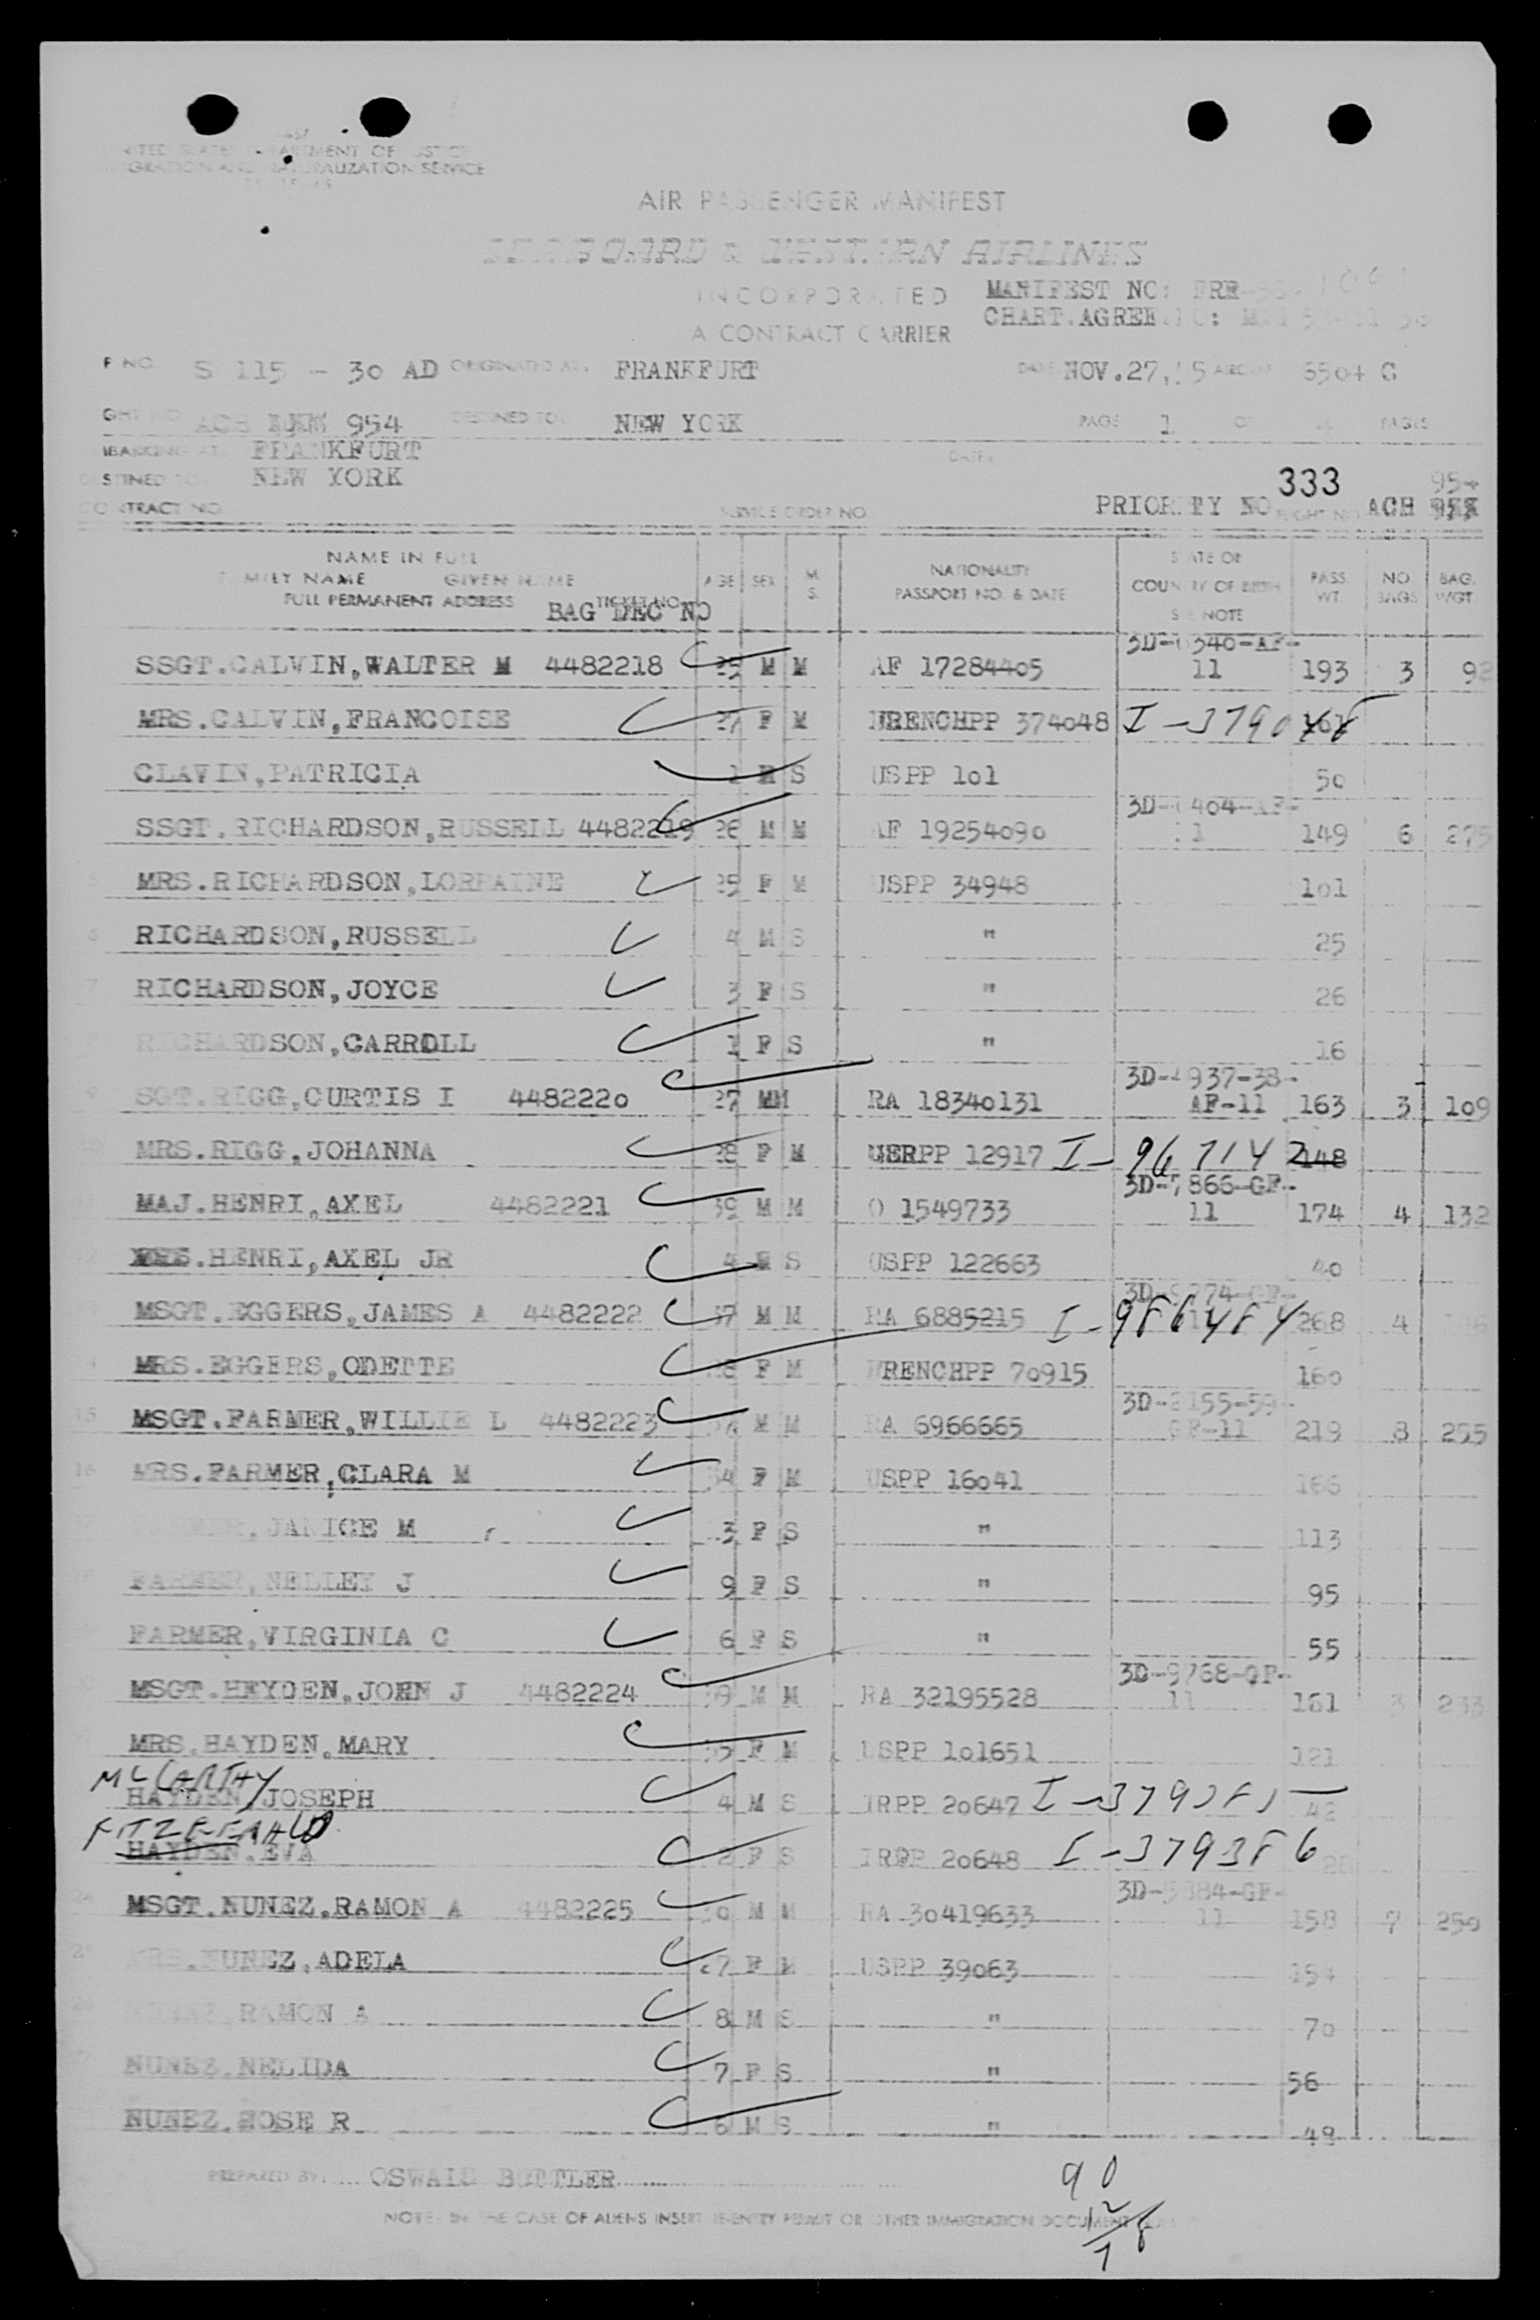 UNITED STATES DEPARTMENT OF JUSTICE
IMMIGRATION AND NATURALIZATION SERVICE
AIR PASSENGER MANIFEST
SEABOARD & WESTERN AIRLINES
INCORPORATED MANIFEST NO: FRR
CHART.AGREE.
A CONTRACT CARRIER
S 115 - 30 AD ORIGINATED AT: FRANKFURT DATE NOV.27, 6504 C
ACH 954 DESTINED TO: NEW YORK PAGE 1 OF PAGES
FRANKFURT DATE:
NEW YORK 333 954
CONTRACT NO SERVICE ORDER NO PRIORITY NO FLIGHT NO ACH
NAME IN FULL
FAMILY NAME GIVEN NAME
FULL PERMANENT ADDRESS TICKET NO BAG DEC NO AGE SEX M. S. NATIONALITY PASSPORT NO. & DATE STATE OR COUNTRY OF BIRTH SEE NOTE PASS. WT. NO. BAGS BAG. WGT.
SSGT.CALVIN,WALTER M 4482218 25 M M AF 17284405 3D-6340-AF-11 193 3 92
MRS.CALVIN,FRANCOISE 27 F M FRENCHPP 374048 I-379044 161
CLAVIN,PATRICIA 1 S USPP 101 50
SSGT.RICHARDSON,RUSSELL 4482219 26 M M AF 19254090 404-AF- 149 6 275
5 MRS.RICHARDSON,LORRAINE 25 F M USPP 34948 101
6 RICHARDSON,RUSSELL 4 M S " 25
7 RICHARDSON,JOYCE 3 F S " 26
RICHARDSON,CARROLL 1 F S " 16
9 SGT.RIGG,CURTIS I 4482220 27 MM RA 18340131 3D-4937-38-AF-11 163 3 109
MRS.RIGG,JOHANNA 28 F M GERPP 12917 I-967142 148
MAJ.HENRI,AXEL 4482221 39 M M O 1549733 3D-7866-GF-11 174 4 132
.HENRI,AXEL JR 4 M S USPP 122663 40
MSGT.EGGERS,JAMES A 4482222 37 M M RA 6885215 I-986484 268 4
MRS.EGGERS,ODETTE F M FRENCHPP 70915 160
15 MSGT.FARMER,WILLIE L 4482223 M M RA 6966665 155-59-GF-11 219 8 255
16 MRS.FARMER,CLARA M 34 F M USPP 16041 166
FARMER,JANICE M 3 F S " 113
FARMER,NELLEY J 9 F S " 95
FARMER,VIRGINIA C 6 F S " 55
MSGT.HEYDEN,JOHN J 4482224 39 M M RA 32195528 3D-9768-GF-11 161 3 233
MRS.HAYDEN,MARY 35 F M USPP 101651 121
McCARTHY
HAYDEN,JOSEPH 4 M S IRPP 20647 I-379385 42
FITZGERALD
HAYDEN,EVA 2 F S IRPP 20648 I-379386 28
MSGT.NUNEZ,RAMON A 4482225 30 M M RA 30419633 884-GF-11 158 7 250
MRS.NUNEZ,ADELA 27 F M USPP 39063 154
NUNEZ,RAMON A 8 M S " 70
NUNEZ,NELIDA 7 F S " 56
NUNEZ,HOSE R 6 M S " 49
PREPARED BY: OSWALD BUTTLER
90
NOTE: IN THE CASE OF ALIENS INSERT RE-ENTRY PERMIT OR OTHER IMMIGRATION DOCUMENT